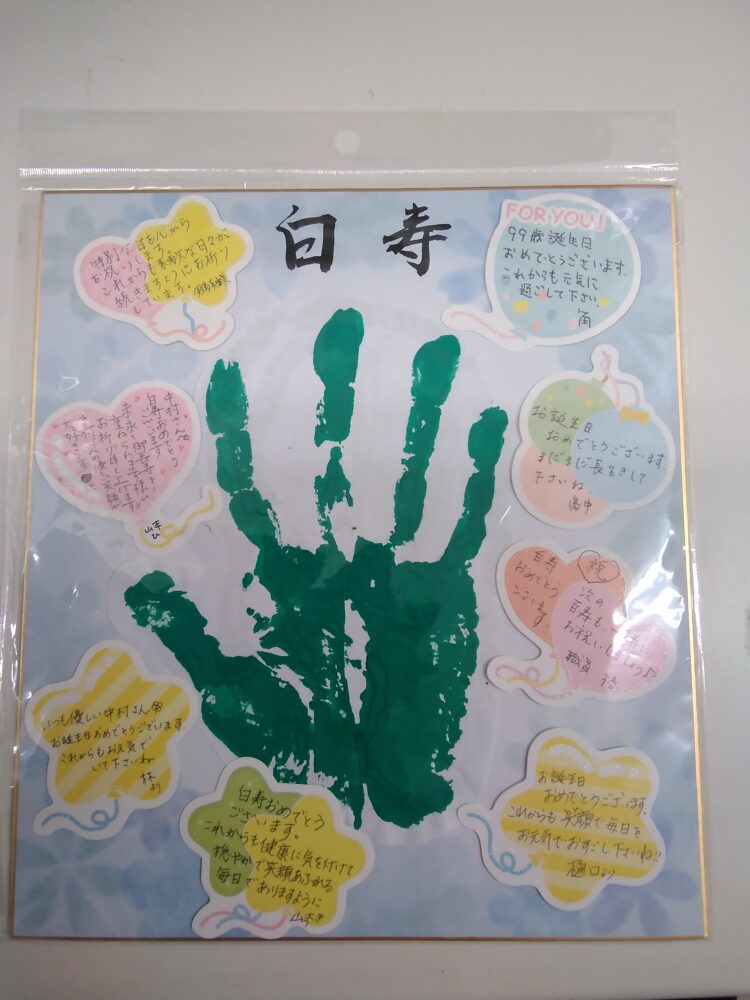 白寿
FOR YOU!
99歳誕生日
おめでとうございます.
これからも元気に
過ごして下さい.
角
特別な日を心から
お祝い
これからも素敵な日々が
続きますようにお祈り
しています。
お誕生日
おめでとうございます.
まだまだ長生きして
下さいね.
畠中
中村さん
白寿おめでとう
ございます。
お祈り申し上げます
山本
白寿
おめでとう
ございます.
祝
次の
百寿も
お祝いしましょう♪
職員
いつも優しい中村さん
お誕生日おめでとうございます.
これからもお元気で
いて下さいね
林より
お誕生日
おめでとうございます.
これからも笑顔で毎日を
お元気でおすごし下さいね!!
樋口より
白寿おめでとう
ございます。
これからも健康に気を付けて
穏やかで笑顔あふれる
毎日でありますように